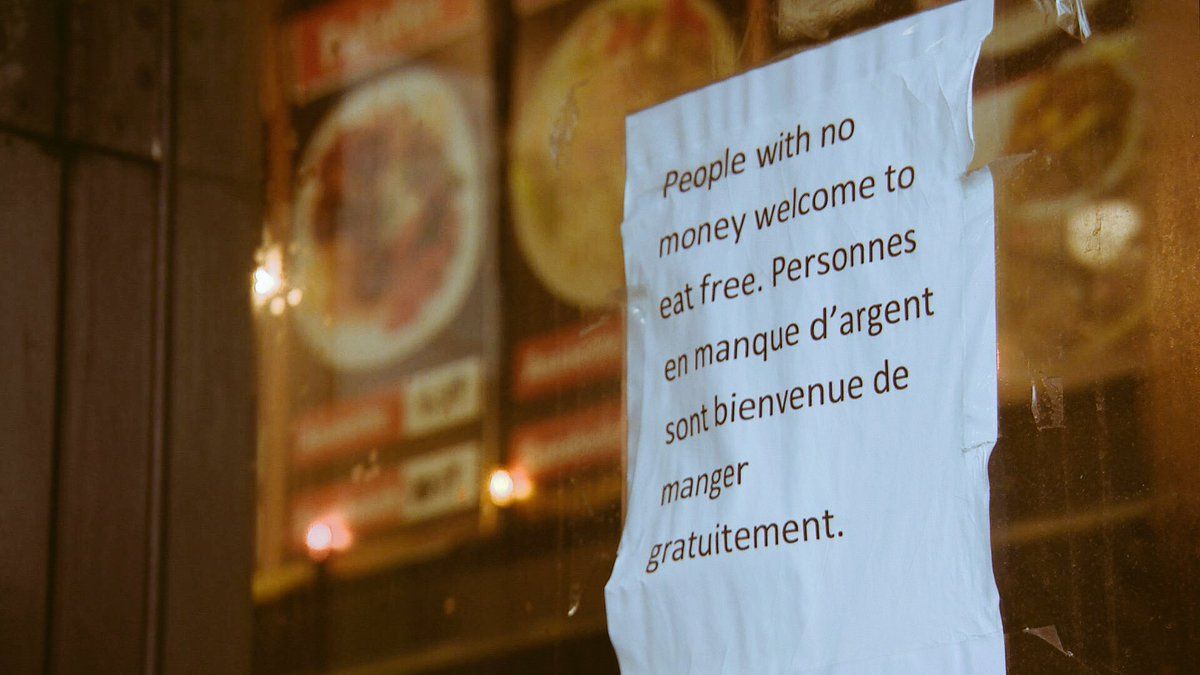 People with no
money welcome to
eat free. Personnes
en manque d’argent
sont bienvenue de
manger
gratuitement.